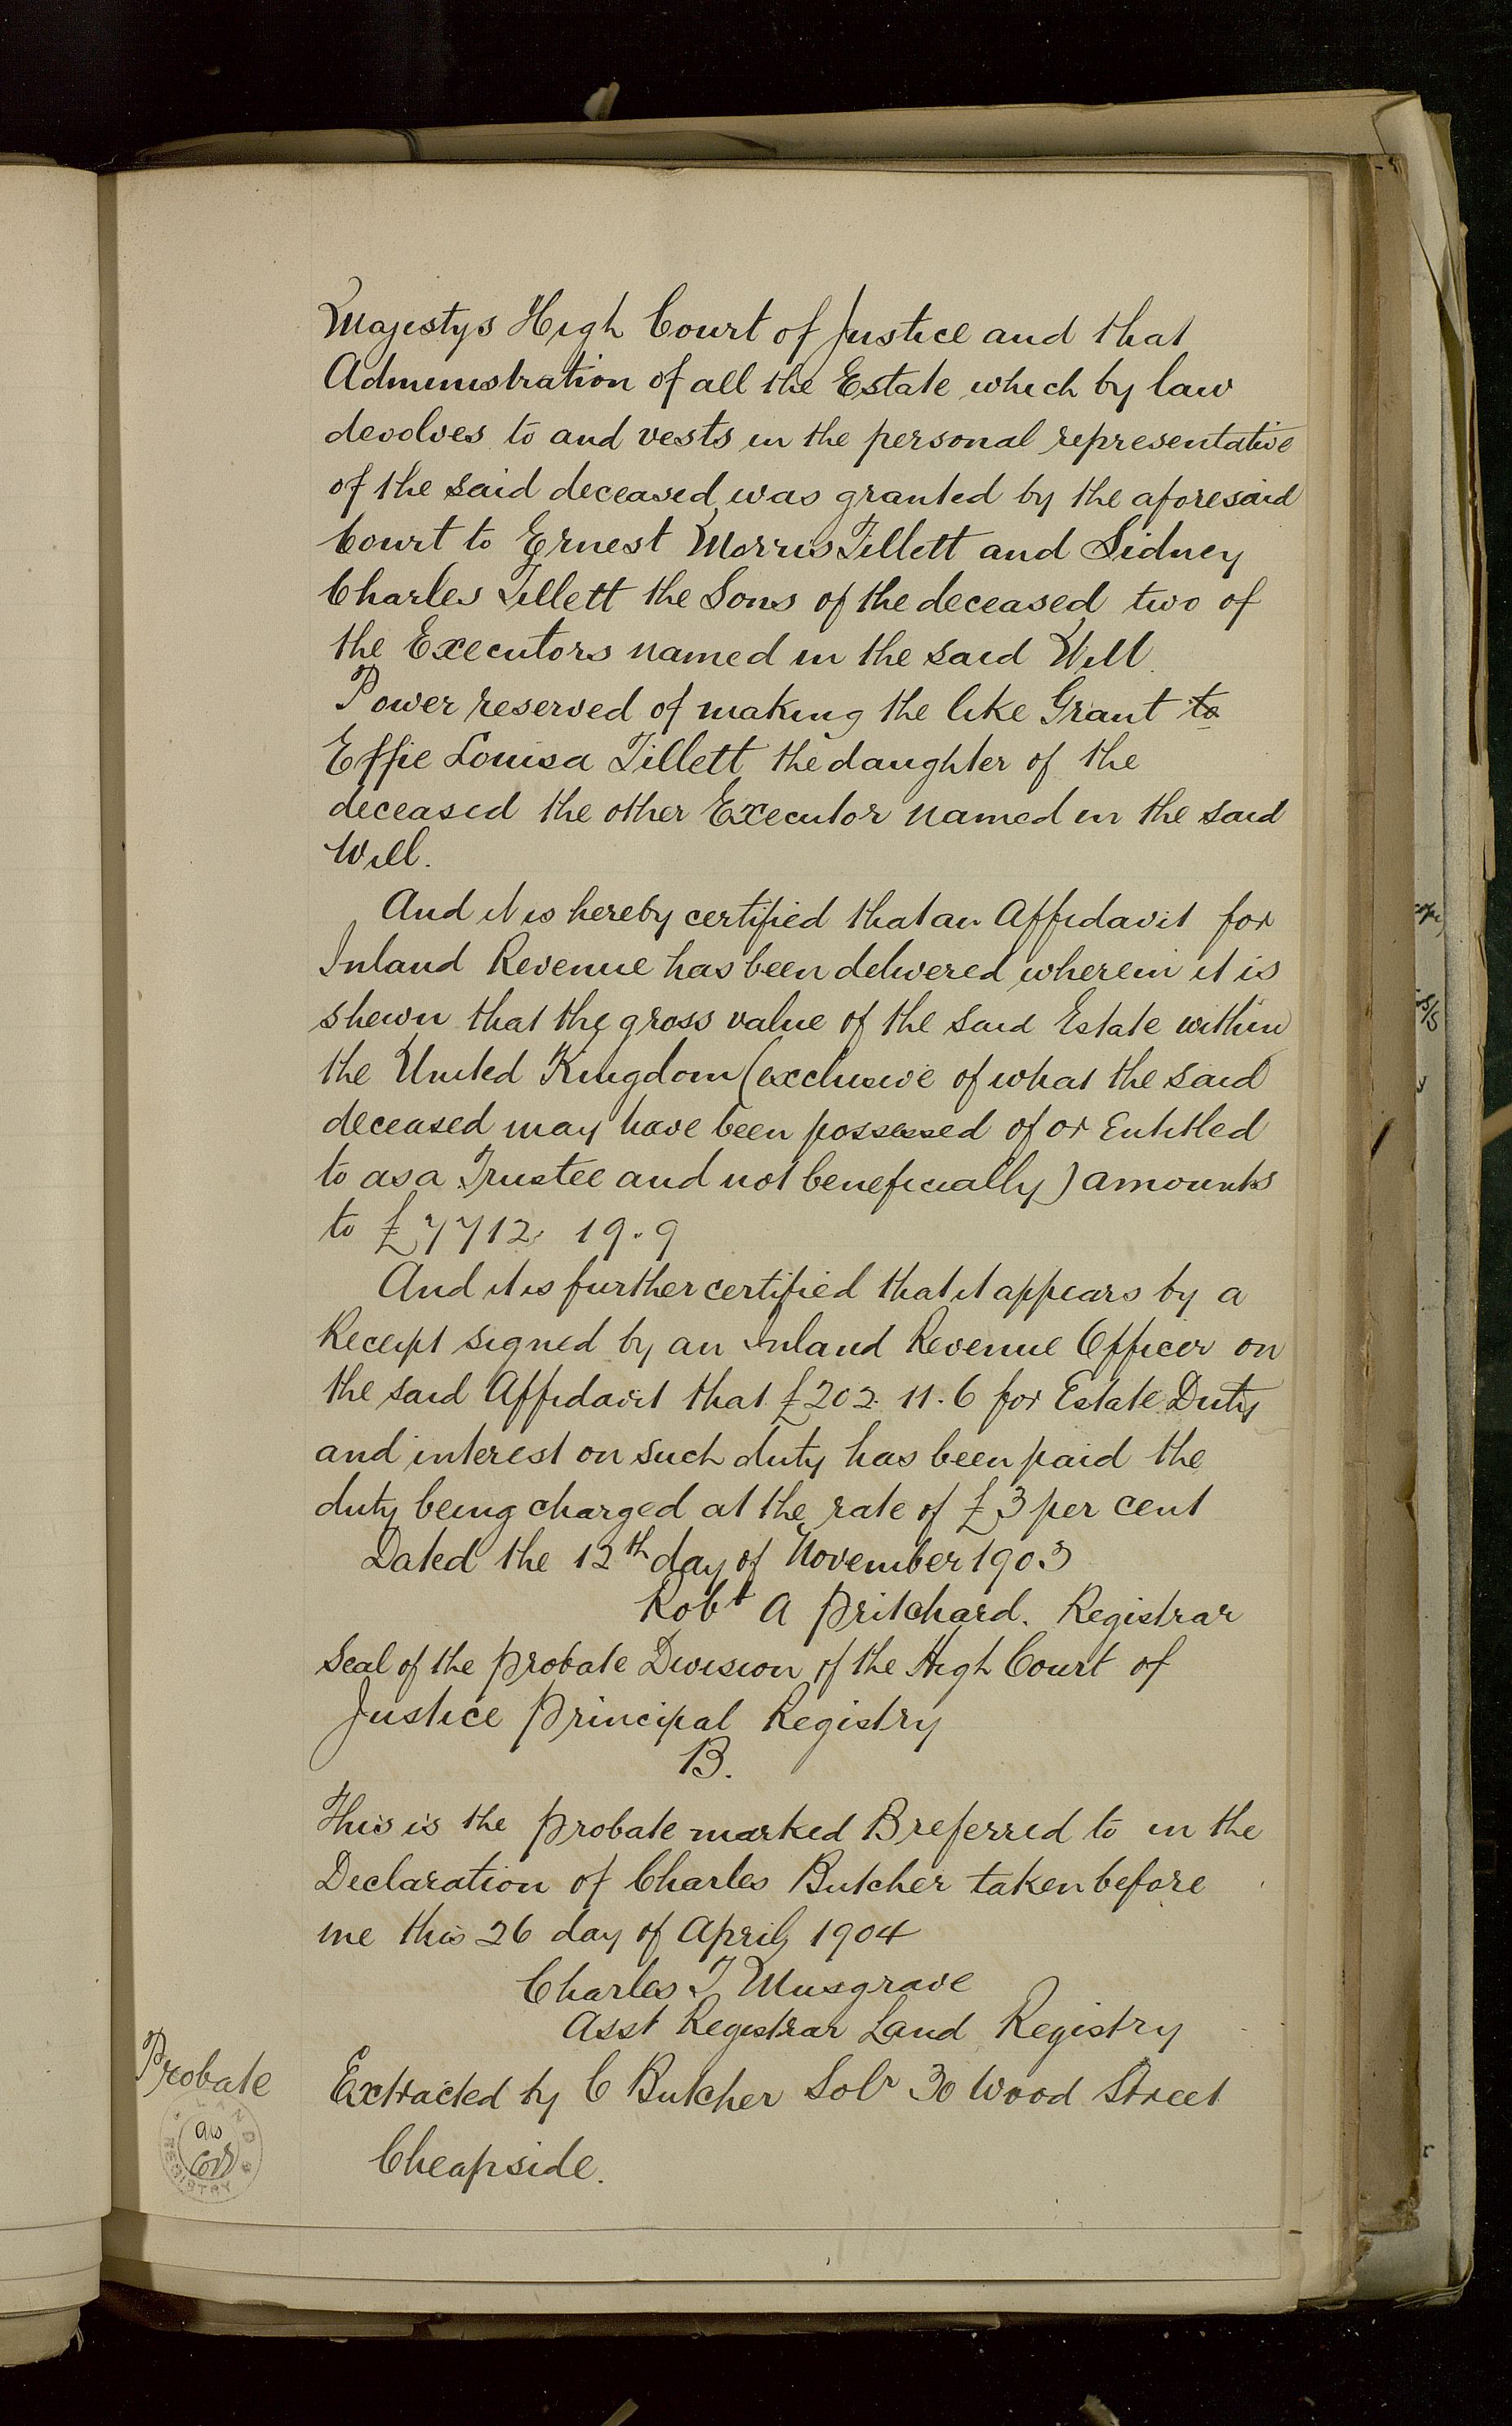 Majestys High Court of Justice and that
Administration of all the Estate which by law
devolves to and vests in the personal representative
of the said deceased was granted by the aforesaid
Court to Ernest Morris Tillett and Sidney
Charles Tillett the Sons of the deceased two of
the Executors named in the said Will.
Power reserved of making the like Grant to
Effie Louisa Tillett the daughter of the
deceased the other Executor named in the said
Will.
And it is hereby certified that an Affidavit for
Inland Revenue has been delivered wherein it is
shewn that the gross value of the said Estate within
the United Kingdom (exclusive of what the said
deceased may have been possessed of or Entitled
to as a Trustee and not beneficially) amounts
to £7712. 19. 9
And it is further certified that it appears by a
Receipt signed by an Inland Revenue Officer on
the said Affidavit that £202. 11. 6 for Estate Duty
and interest on such duty has been paid the
duty being charged at the rate of £3 per cent
Dated the 12th day of November 1903
Robt A Pritchard. Registrar
Seal of the Probate Division of the High Court of
Justice Principal Registry
B.
This is the Probate marked B referred to in the
Declaration of Charles Butcher taken before
me this 26 day of April 1904
Charles T Musgrave
Asst Registrar Land Registry
Probate
Extracted by C Butcher Solr 30 Wood Street
Cheapside.
LAND REGISTRY